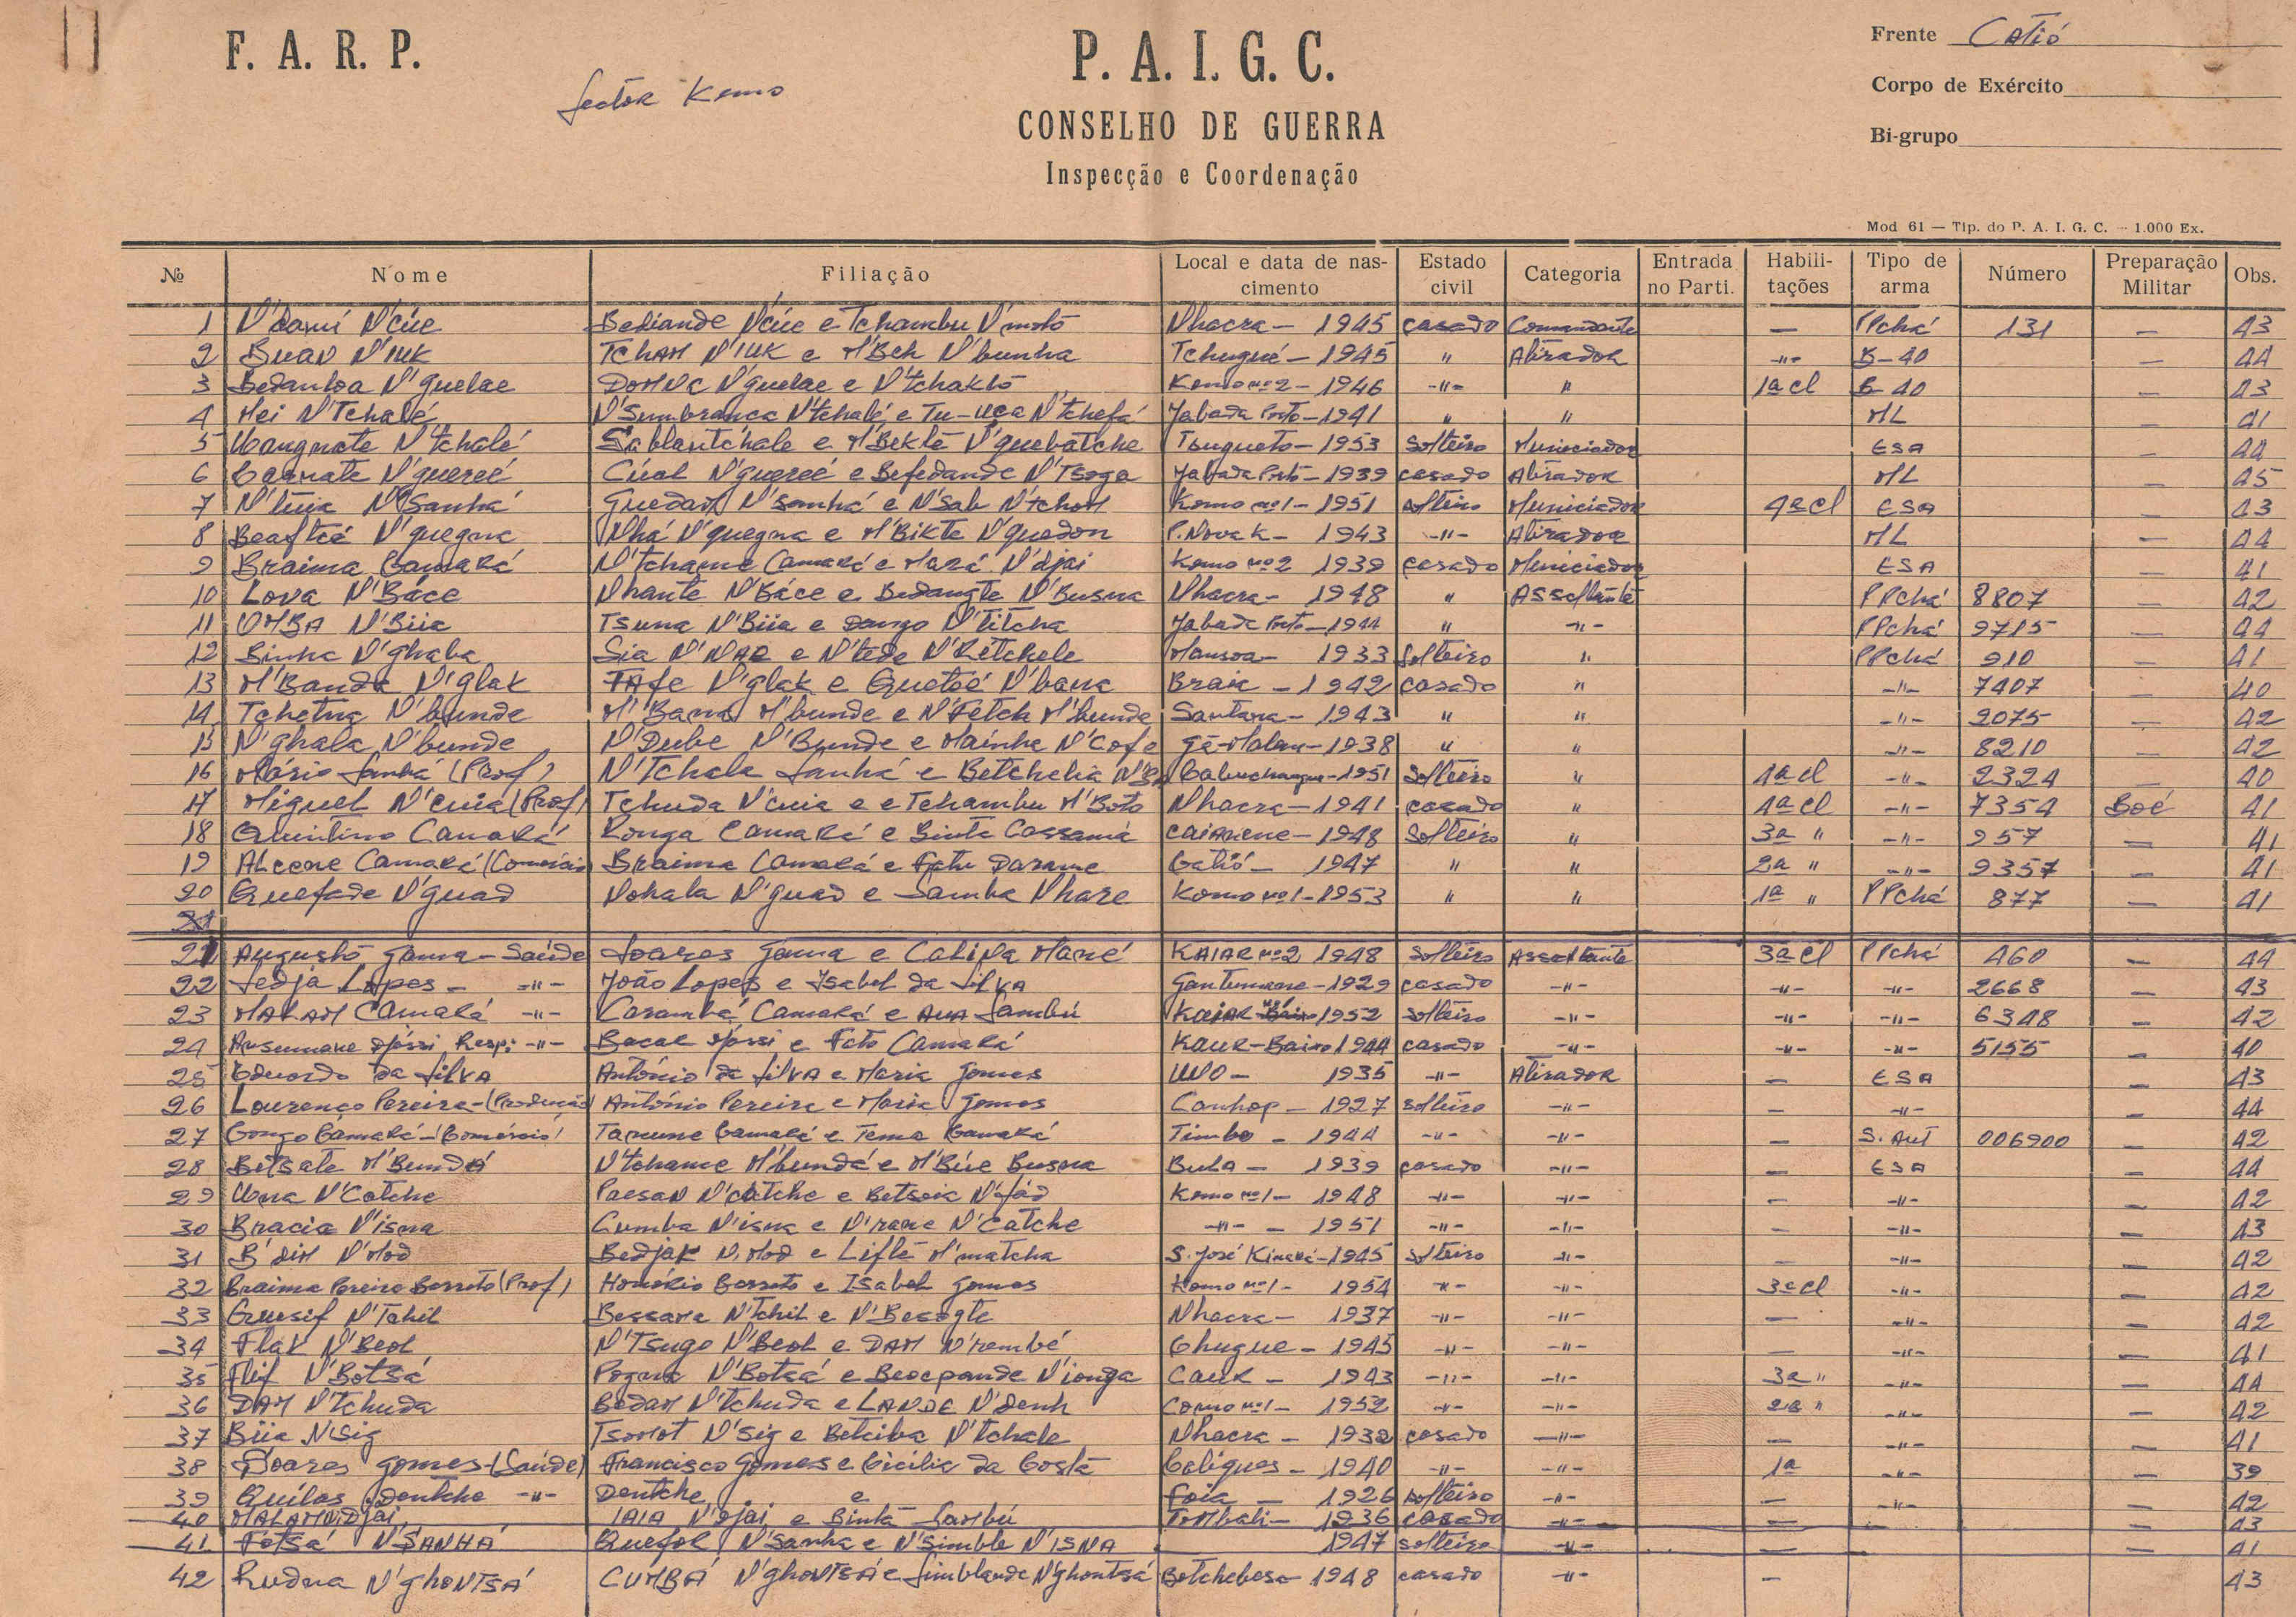 F. A. R. P.
Sector Komo
P. A. I. G. C.
CONSELHO DE GUERRA
Inspecção e Coordenação
Frente Catió
Corpo de Exército
Bi-grupo
Mod 61 — Tip. do P. A. I. G. C. — 1.000 Ex.
№ Nome Filiação Local e data de nascimento Estado civil Categoria Entrada no Parti. Habilitações Tipo de arma Número Preparação Militar Obs.
1 N'cúe Bediande N'cúe e Tchambu N'motó Nhacra - 1945 casado Comandante — PPchá 131 — 43
2 Buad N'IUK TCHAM N'IUK e M'Beh N'bunha Tchugué - 1945 " Atirador -"- B-40 — 44
3 Bedanloa N'guelae N'guelae e N'tchakló Komo nº2 - 1946 -"- " 1ª cl B-40 — 43
4 Mei N'Tchalé N'Sumbranca N'tchalé e N'tchefá Jabada Porto - 1941 " " ML — 41
5 N'tchalé e M'Bekte N'guebatche 1953 Solteiro Municiador ESA — 44
6 N'guereé N'guereé e Befedande N'Tsoga Jabada Porto - 1939 casado Atirador ML — 45
7 N'Sanhá N'sanhá e N'Sab N'tchom Komo nº1 - 1951 solteiro Municiador 4ª cl ESA — 43
8 N'quegna Nhá N'quegna e M'Bikte N'quedon P. Nova K - 1943 -"- Atirador ML — 44
9 Braima Camará N'tchame Camará e Mará N'djai Komo nº2 1939 casado Municiador ESA — 41
10 Lova N'Báce Nhante N'Báce e Bedangte N'Busna Nhacra - 1948 " Assaltante PPchá 8807 — 42
11 OMBA N'Biia Tsuna N'Biia e Dongo N'titcha Jabada Porto - 1944 " -"- PPchá 9715 — 44
12 Binha N'ghaba Sia N'NAR e N'tede N'Retchele Mansoa - 1933 Solteiro " PPchá 910 — 41
13 M'Banda N'glak TAfe N'glak e Quetsé N'bana Braia - 1942 casado " -"- 7407 — 40
14 Tchetna N'bunde M'Bana M'bunde e N'Fetch M'bunde Santana - 1943 " " -"- 2075 — 42
15 N'ghala N'bunde N'Dube N'Bunde e Mainha N'Cofe Gã-Malam - 1938 " " -"- 8210 — 42
16 Mário Sanhá (Prof) N'Tchala Sanhá e Betchelia 1951 Solteiro " 1ª cl -"- 2324 — 40
17 Miguel N'cuia (Prof) Tchuda N'cuia e e Tchambu M'Boto Nhacra - 1941 casado " 4ª cl -"- 7354 Boé 41
18 Quintino Camará Ronga Camará e Binta Cassamá Caiarene - 1948 Solteiro " 3ª " -"- 957 — 41
19 Camará Braima Camará e Fatu Darame Catió - 1947 " " 2ª " -"- 9357 — 41
20 Quefade N'guad Nohala N'guad e Samba Nhare Komo nº1 - 1953 " " 1ª " PPchá 877 — 41
21
21 Augusto Gama - Saúde Soares Gama e Cativa Mané KAIAR nº2 1948 Solteiro Assaltante 3ª cl PPchá 460 — 44
22 Sedja Lopes - -"- João Lopes e Isabel da Silva 1929 casado -"- -"- -"- 2668 — 43
23 MALAM Camará -"- Carambá Camará e AUA Sambú 1952 Solteiro -"- -"- -"- 6348 — 42
24 Ansumane Resp: -"- Bacar e Fató Camará Kaur-Baixo 1944 casado -"- -"- -"- 5155 — 40
25 Eduardo da Silva António da Silva e Maria Gomes UNO - 1935 -"- Atirador — ESA — 43
26 Lourenço Pereira - (Produção) António Pereira e Maria Gomes Canhop - 1927 solteiro -"- — -"- — 44
27 Gonço Camará - (Comércio) Tanune Camará e Tema Camará Timbo - 1944 -"- -"- — S. Aut 006900 — 42
28 Betsate M'BundÁ N'tchame M'bundá e M'Búe Busna Bula - 1939 casado -"- — ESA — 44
29 Una N'Catche Paesan N'catche e Betsoia N'fád Komo nº1 - 1948 -"- -"- — -"- — 42
30 Bracia N'isna Cumba N'isna e N'rane N'Catche -"- - 1951 -"- -"- — -"- — 43
31 B'dim N'Mod Bedjak N.Mod e Liflé M'matcha S. José - 1945 solteiro -"- — -"- — 42
32 Braima Pereira Barreto (Prof) Honório Barreto e Isabel Gomes Komo nº1 - 1954 -"- -"- 3ª cl -"- — 42
33 Quesif N'Tchil Bessara N'tchil e N'Besogte Nhacra - 1937 -"- -"- — -"- — 42
34 Flak N'Beol N'Tsugo N'Beol e DAM N'rembé Chugue - 1945 -"- -"- — -"- — 41
35 Flif N'Botsá Pogana N'Botsá e Beoepande N'ionga Caur - 1943 -"- -"- 3ª " -"- — 44
36 DAM N'tchuda Bedam N'tchuda e LANDE N'denh Como nº1 - 1952 -"- -"- 2ª " -"- — 42
37 Biia N'Sig Tsomot N'Sig e Betciba N'tchale Nhacra - 1932 casado -"- — -"- — 41
38 Soares Gomes - (Saúde) Francisco Gomes e Cicilia da Costa Caligues - 1940 -"- -"- 1ª -"- — 39
39 Quilas Dentche -"- Dentche e Foia - 1926 solteiro -"- — -"- — 42
40 MALAM N'Djai IAIA N'Djai e Binta Sambú Tombali - 1936 casado -"- — — 43
41 Fotsá N'SANHÁ Quefol N'Sanha e N'Simble N'ISNA 1947 solteiro -"- — — 41
42 Rudna N'GhONTSÁ CUMBÁ N'ghONTSÁ e Simblande N'ghontsá Botchebesa - 1948 casado -"- — 43